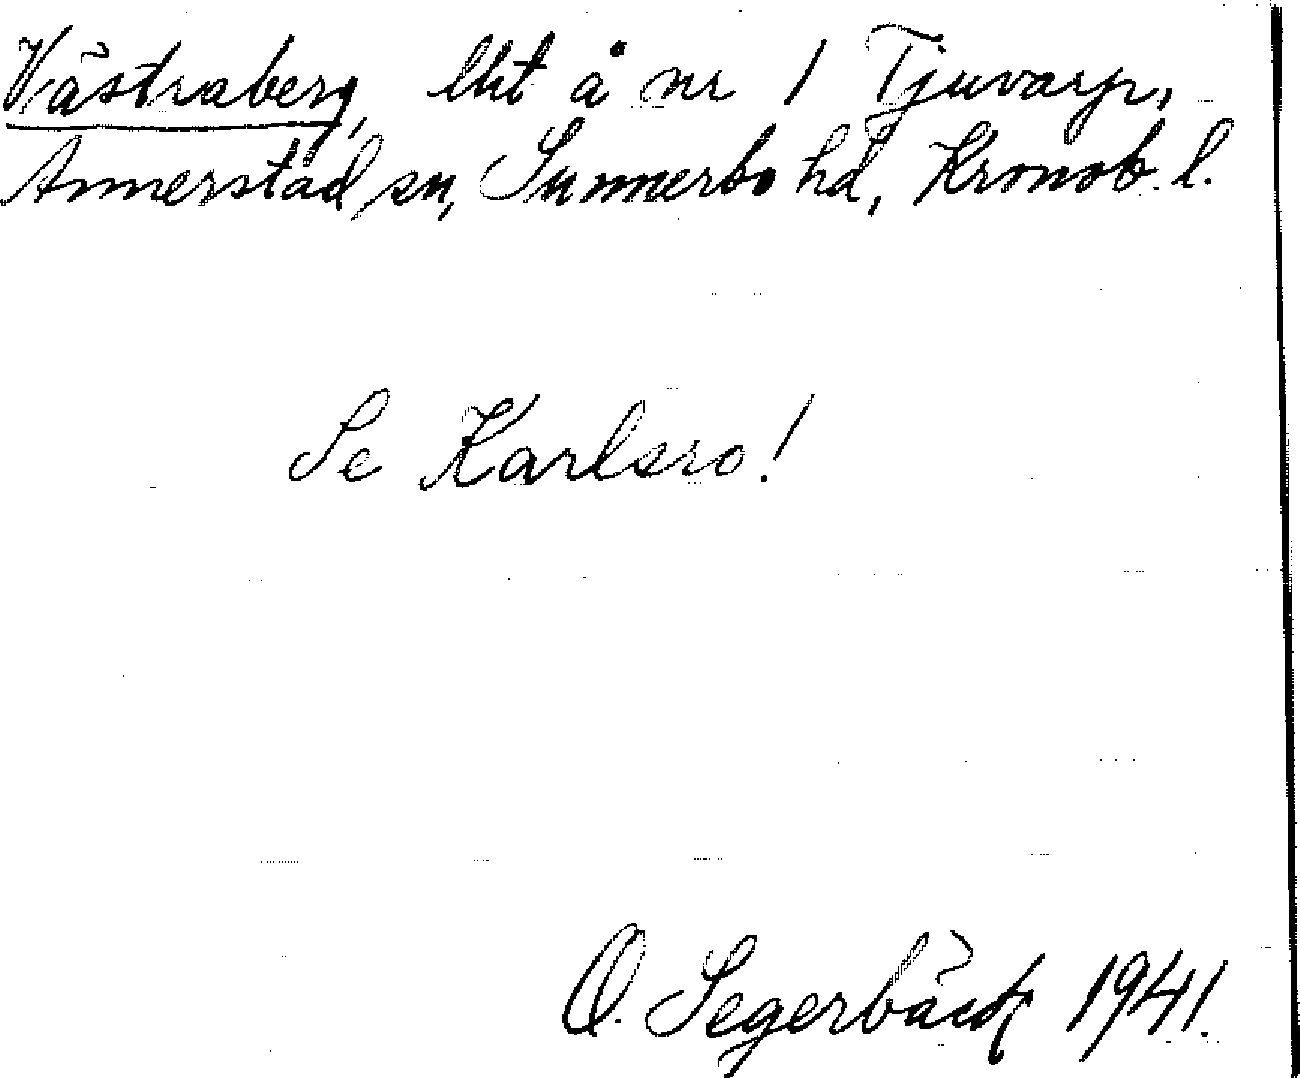 Västraberg, lht å nr 1 Tjuvarp,
Annerstad sn, Sunnerbo hd, Kronob. l.
Se Karlsro!
O. Segerbäck 1941.